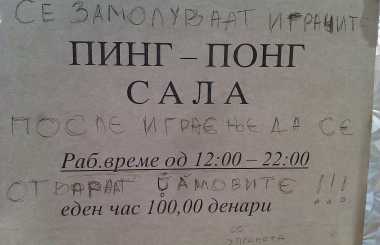 СЕ ЗАМОЛУВААТ ИГРАЧИТЕ
ПИНГ – ПОНГ
САЛА
ПОСЛЕ ИГРАЊЕ ДА СЕ
Раб.време од 12:00 – 22:00
ОТВАРААТ ЏАМОВИТЕ !!!
еден час 100,00 денари
ОД
УПРАВАТА